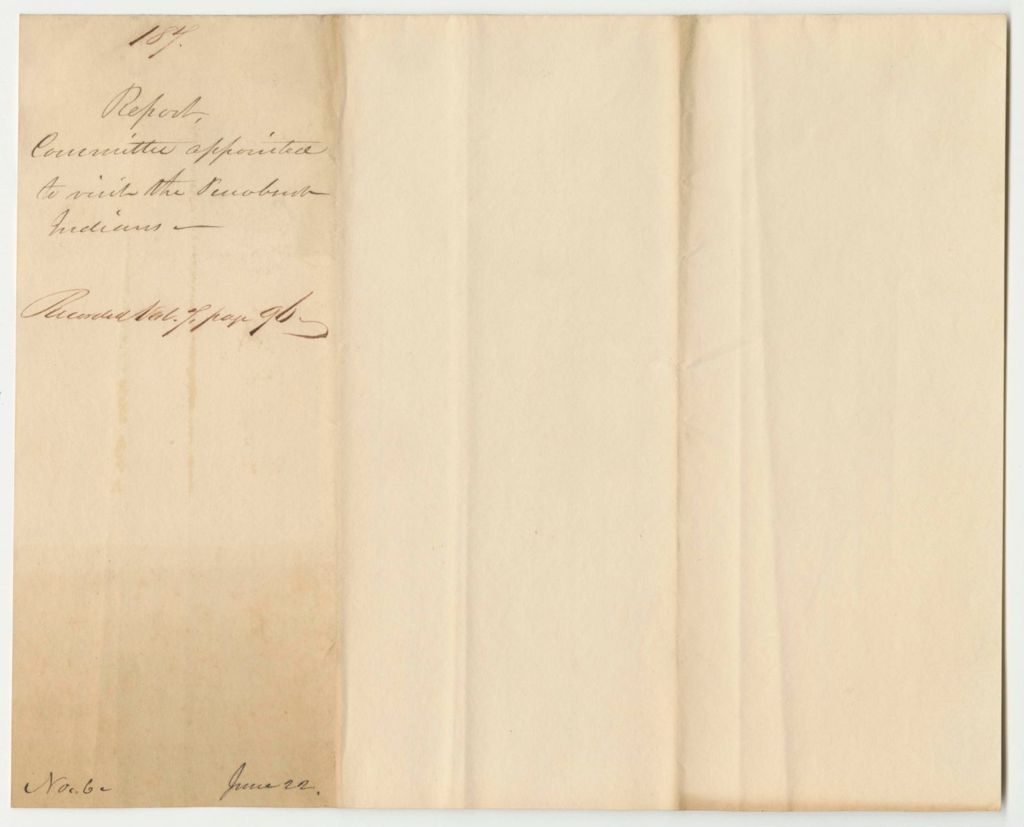 187.
Report,
Committee appointed
to visit the Penobscot
Indians —
Recorded Vol. 7, page 96
No. 6
June 22.